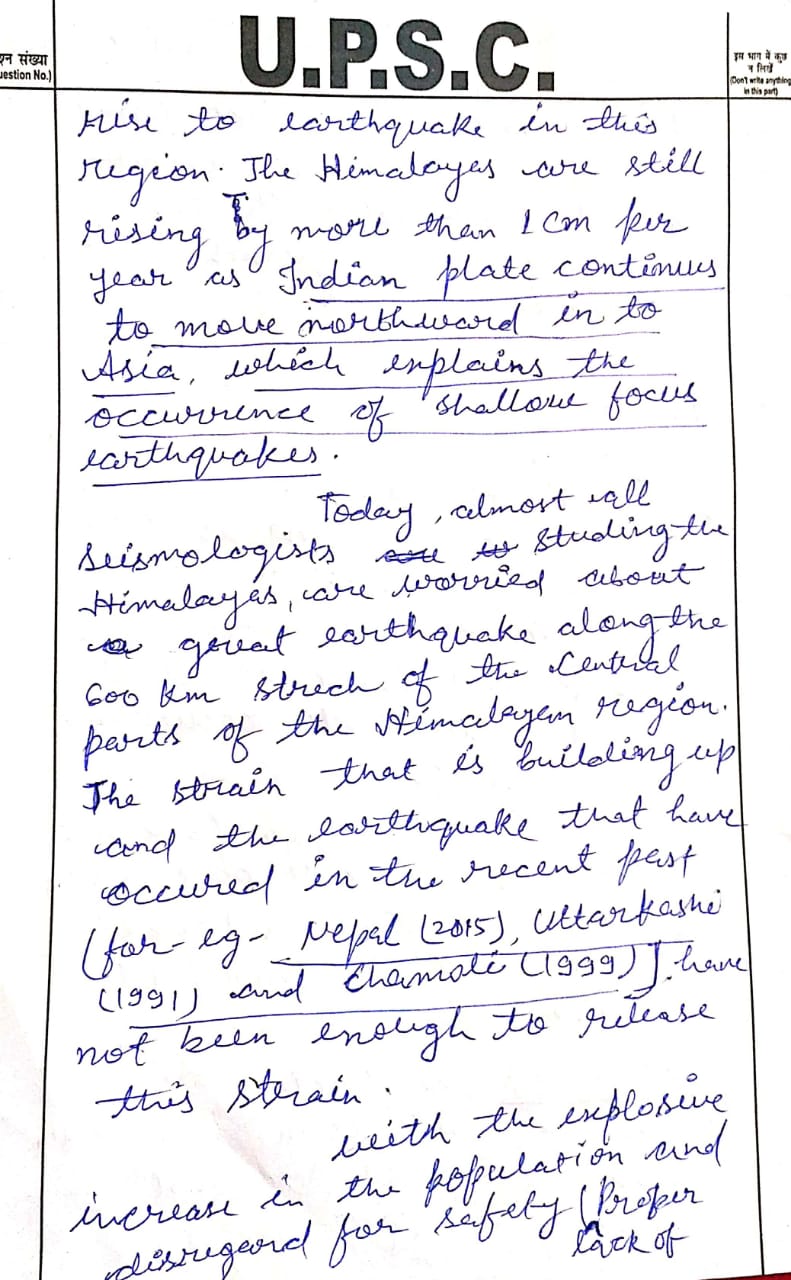 श्न संख्या
uestion No.)
U.P.S.C.
इस भाग में कुछ
न लिखें
(Don't write anything
in this part)
rise to earthquake in this
region. The Himalayas are still
rising by more than 1 cm per
year as Indian plate continues
to move northward in to
Asia, which explains the
occurrence of shallow focus
earthquakes.
Today, almost all
seismologists studing the
Himalayas, are worried about
a great earthquake along the
600 km strech of the Central
parts of the Himalayan region.
The strain that is building up
and the earthquake that have
occured in the recent past
(for-eg- Nepal (2015), Uttarkashi
(1991) and Chamoli (1999)] have
not been enough to release
this strain.
with the explosive
increase in the population and
disregard for safety (Proper
lack of